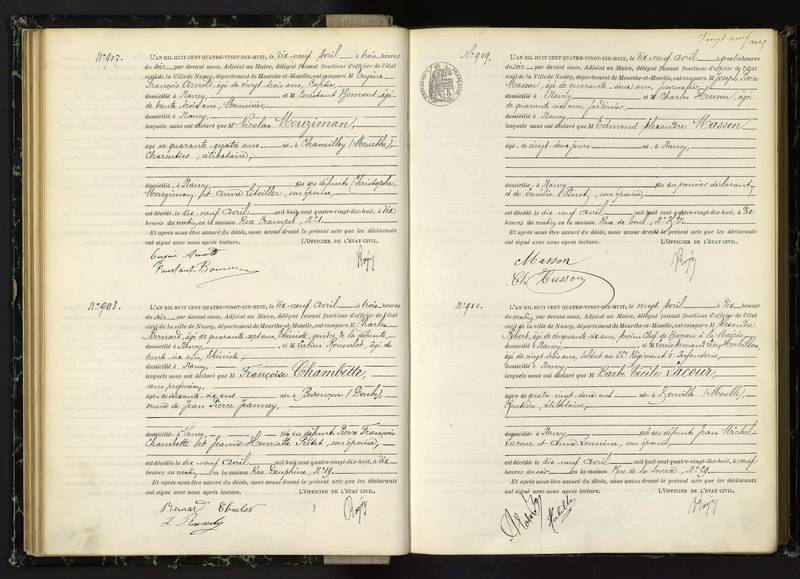 N° 907.
L'AN MIL HUIT CENT QUATRE-VINGT-DIX-HUIT, le dix-neuf Avril à trois heures
du soir par devant nous, Adjoint au Maire, délégué faisant fonctions d'officier de l'état
civil de la Ville de Nancy, département de Meurthe-et-Moselle, ont comparu M. Eugène
François âgé de vingt trois ans,
domicilié à Nancy et M. Constant âgé
de trente trois ans, Menuisier,
domicilié à Nancy
lesquels nous ont déclaré que M. Nicolas Mouziman,
âgé de quarante quatre ans né à (Meurthe),
Charpentier, célibataire,
domicilié à Nancy fils des défunts Christophe
Mouziman et Anne son épouse,
est décédé le dix-neuf Avril mil huit cent quatre-vingt-dix-huit, à dix
heures du matin, en la maison Rue N° 1.
Et après nous être assuré du décès, nous avons dressé le présent acte que les déclarants
ont signé avec nous après lecture. L'OFFICIER DE L'ÉTAT CIVIL,
N° 908.
L'AN MIL HUIT CENT QUATRE-VINGT-DIX-HUIT, le dix-neuf Avril à trois heures
du soir par devant nous, Adjoint au Maire, délégué faisant fonctions d'officier de l'état
civil de la Ville de Nancy, département de Meurthe-et-Moselle, ont comparu M. Charles
Bernard, âgé de quarante sept ans, Ebéniste, gendre de la défunte,
domicilié à Nancy et M. Lucien âgé de
trente six ans, Ebéniste,
domicilié à Nancy
lesquels nous ont déclaré que M. Françoise Chambette,
sans profession,
âgée de soixante-six ans née à Besançon (Doubs),
veuve de Jean Pierre Jeanney,
domiciliée à Nancy fille des défunts Pierre François
Chambette et Jeanne Henriette son épouse,
est décédée le dix-neuf Avril mil huit cent quatre-vingt-dix-huit, à dix
heures du matin, en la maison Rue Dauphine, N° 19.
Et après nous être assuré du décès, nous avons dressé le présent acte que les déclarants
ont signé avec nous après lecture. L'OFFICIER DE L'ÉTAT CIVIL,
Bernard Charles
Vingt-neuf
N° 909.
L'AN MIL HUIT CENT QUATRE-VINGT-DIX-HUIT, le dix-neuf Avril à quatre heures
du soir par devant nous, Adjoint au Maire, délégué faisant fonctions d'officier de l'état
civil de la Ville de Nancy, département de Meurthe-et-Moselle, ont comparu M. Joseph
Masson, âgé de quarante-deux ans, journalier,
domicilié à Nancy et M. Charles Husson, âgé
de quarante six ans, jardinier,
domicilié à Nancy
lesquels nous ont déclaré que M. Edmond Alexandre Masson
âgé de vingt deux jours né à Nancy,
domicilié à Nancy fils du premier déclarant
et de Emilie son épouse,
est décédé le dix-neuf Avril mil huit cent quatre-vingt-dix-huit, à dix
heures du matin, en la maison Rue de Toul,
Et après nous être assuré du décès, nous avons dressé le présent acte que les déclarants
ont signé avec nous après lecture. L'OFFICIER DE L'ÉTAT CIVIL,
Masson
Ch. Husson
N° 910.
L'AN MIL HUIT CENT QUATRE-VINGT-DIX-HUIT, le vingt Avril à dix
heures du matin, par devant nous, Adjoint au Maire, délégué faisant fonctions d'officier de l'état
civil de la Ville de Nancy, département de Meurthe-et-Moselle, ont comparu M. Alexandre
âgé de cinquante six ans, Chef de Bureau à la Mairie,
domicilié à Nancy et M.
âgé de vingt trois ans, Soldat au Régiment d'Infanterie,
domicilié à Nancy
lesquels nous ont déclaré que M. Barbe Cécile Lacour,
âgée de quatre vingt deux ans née à Gonville (Moselle),
Rentière, célibataire,
domiciliée à Nancy fille des défunts Jean Michel
Lacour et Anne son épouse,
est décédée le dix-neuf Avril mil huit cent quatre-vingt-dix-huit, à neuf
heures du soir, en la maison Rue de la N° 29.
Et après nous être assuré du décès, nous avons dressé le présent acte que les déclarants
ont signé avec nous après lecture. L'OFFICIER DE L'ÉTAT CIVIL,